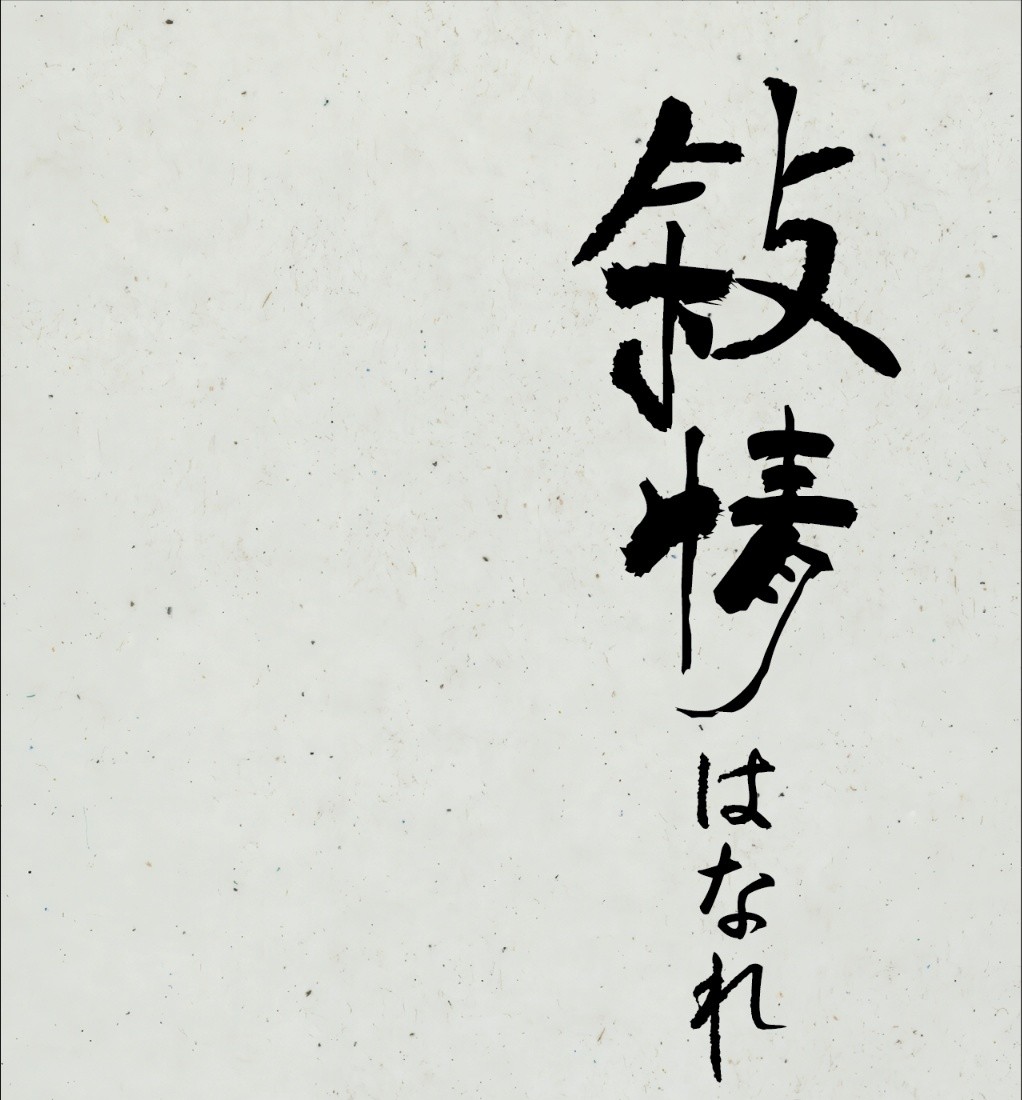 敘情はなれ